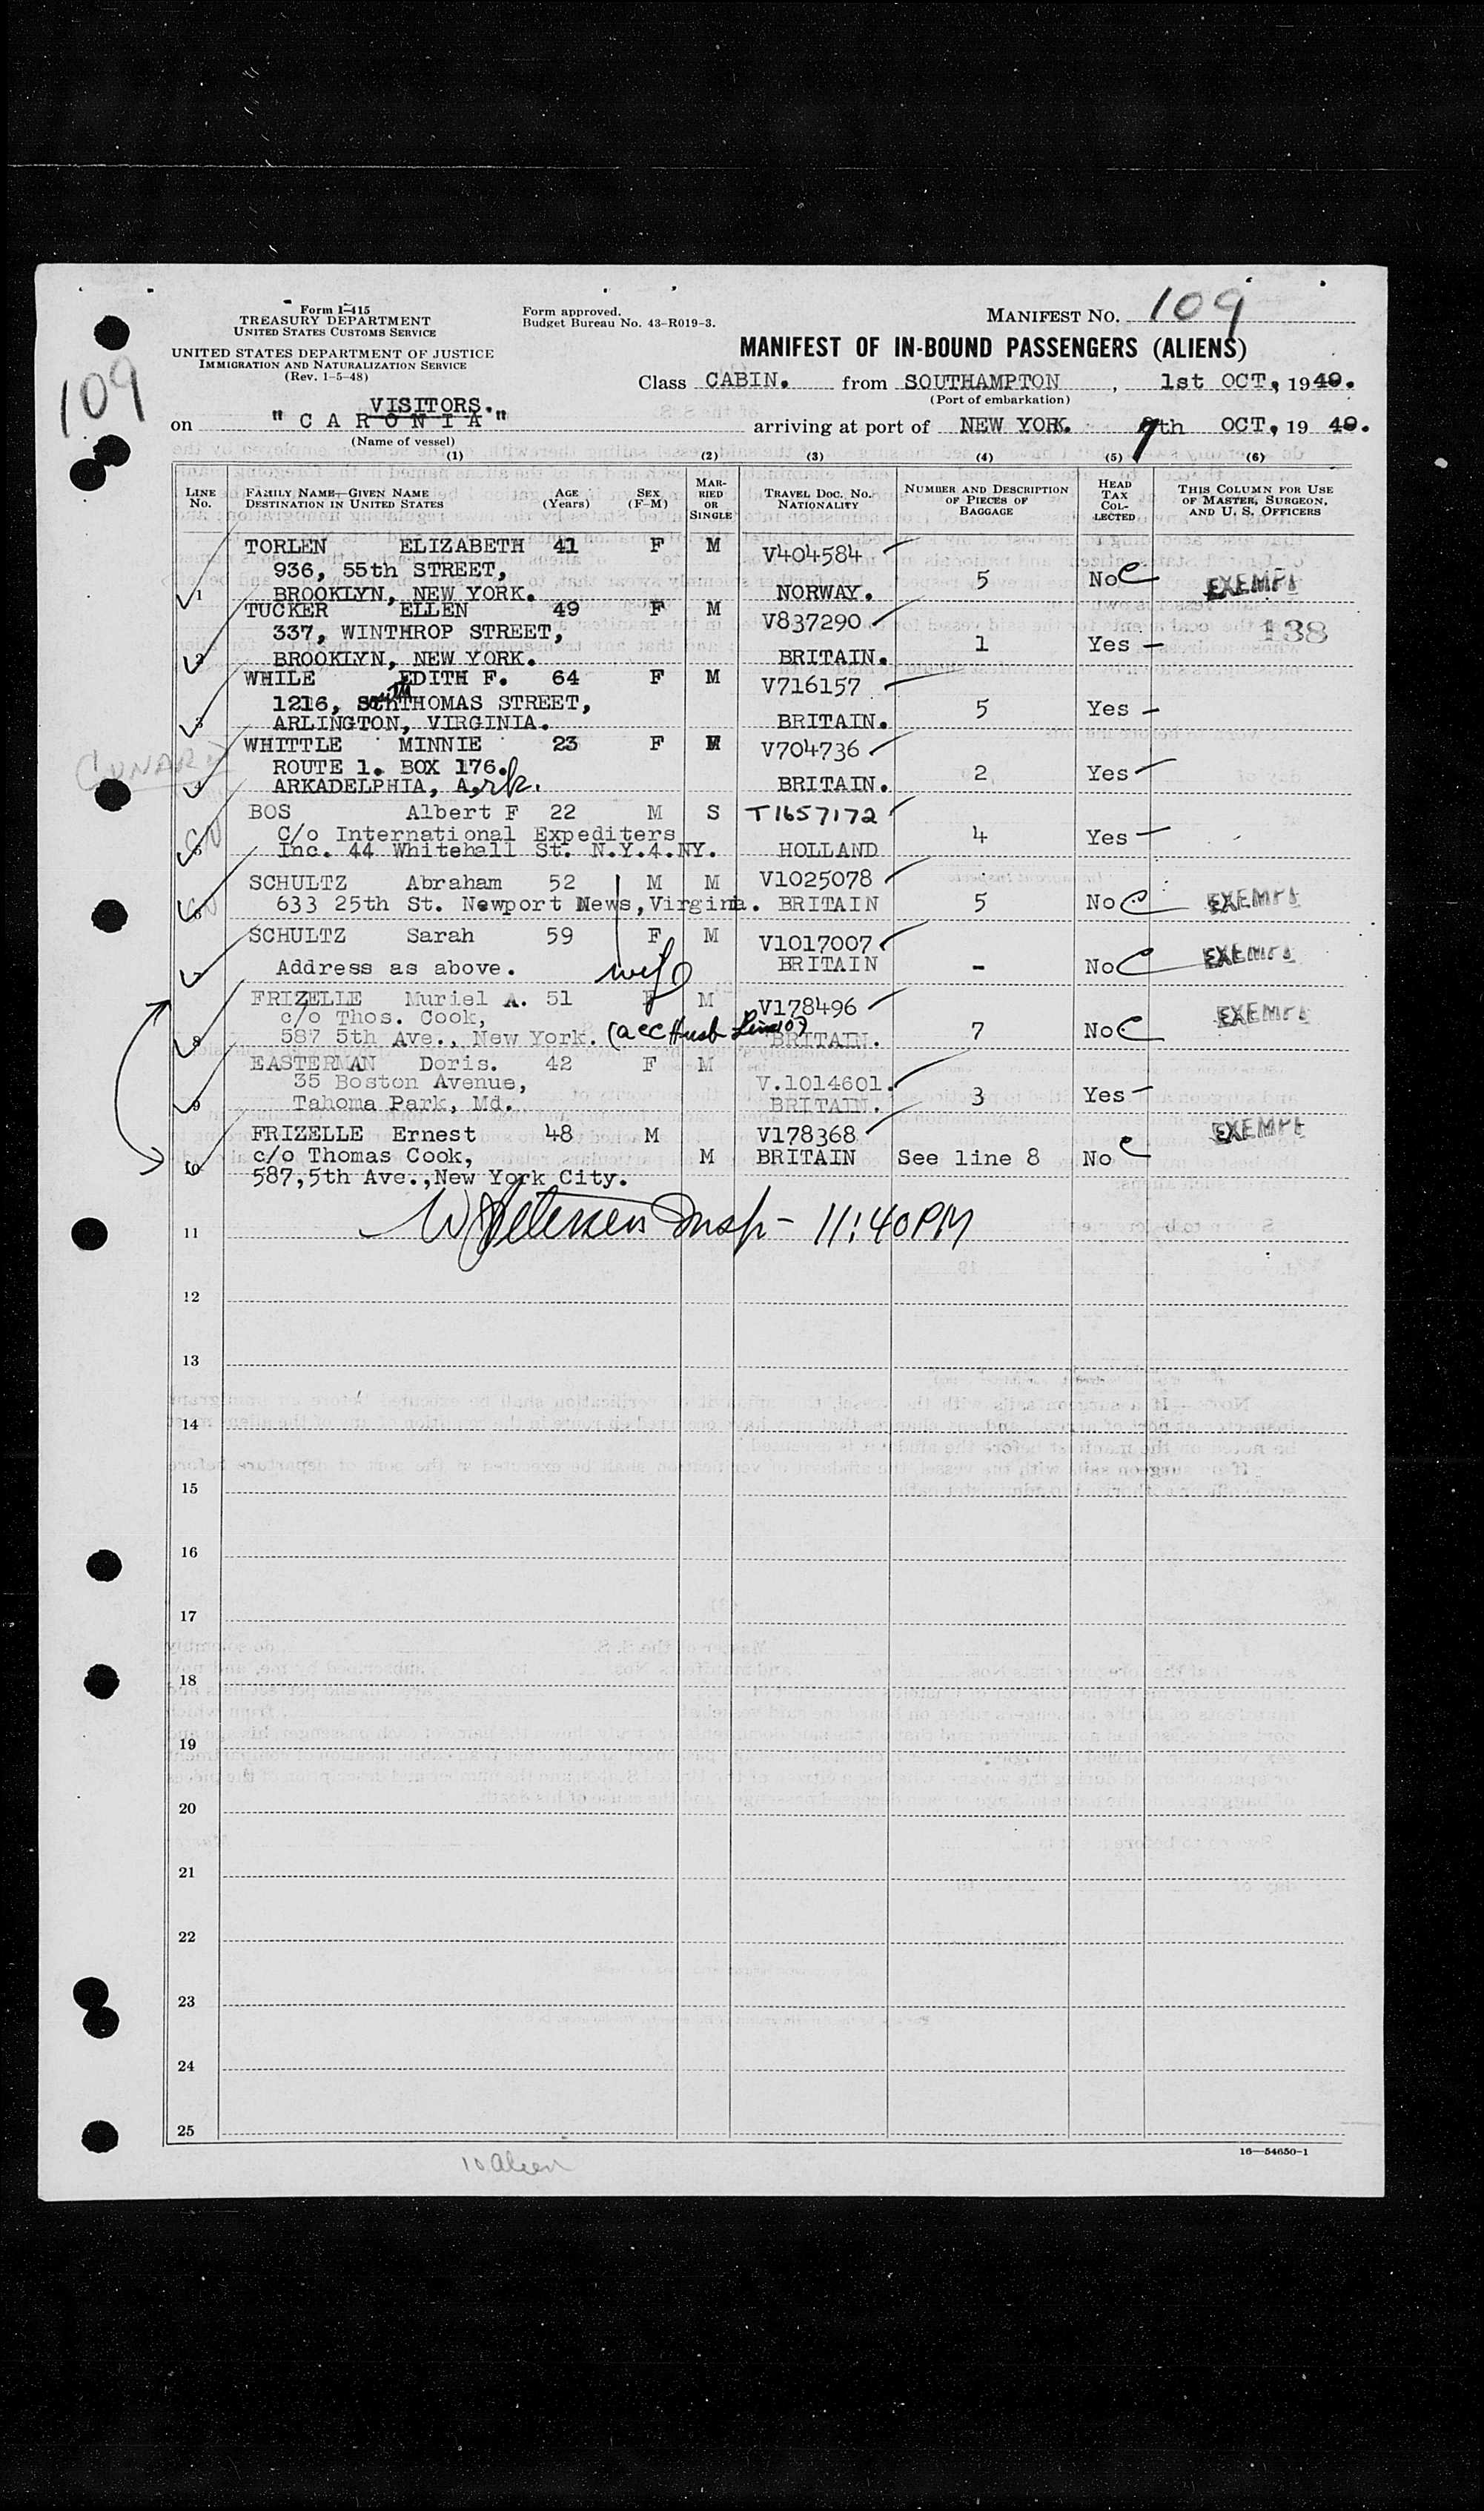 Form I-415
TREASURY DEPARTMENT
UNITED STATES CUSTOMS SERVICE
UNITED STATES DEPARTMENT OF JUSTICE
IMMIGRATION AND NATURALIZATION SERVICE
(Rev. 1-5-48)
Form approved.
Budget Bureau No. 43-R019-3.
MANIFEST NO. 109
109
MANIFEST OF IN-BOUND PASSENGERS (ALIENS)
Class CABIN. from SOUTHAMPTON, 1st OCT, 1949.
(Port of embarkation)
VISITORS.
on "CARONIA" arriving at port of NEW YORK. 7th OCT, 1949.
(Name of vessel)
(1) (2) (3) (4) (5) (6)
LINE No. FAMILY NAME—GIVEN NAME DESTINATION IN UNITED STATES AGE (Years) SEX (F-M) MARRIED OR SINGLE TRAVEL DOC. NO. NATIONALITY NUMBER AND DESCRIPTION OF PIECES OF BAGGAGE HEAD TAX COLLECTED THIS COLUMN FOR USE OF MASTER, SURGEON, AND U. S. OFFICERS
TORLEN ELIZABETH 41 F M V404584
936, 55th STREET, 5 No C EXEMPT
1 BROOKLYN, NEW YORK. NORWAY.
TUCKER ELLEN 49 F M V837290 138
337, WINTHROP STREET, 1 Yes –
2 BROOKLYN, NEW YORK. BRITAIN.
WHILE EDITH F. 64 F M V716157
1216, South THOMAS STREET, 5 Yes –
3 ARLINGTON, VIRGINIA. BRITAIN.
WHITTLE MINNIE 23 F M V704736
CUNARD
ROUTE 1. BOX 176. 2 Yes –
4 ARKADELPHIA, Ark. BRITAIN.
BOS Albert F 22 M S T1657172
C/o International Expediters 4 Yes –
5 Inc. 44 Whitehall St. N.Y.4.NY. HOLLAND
SCHULTZ Abraham 52 M M V1025078
6 633 25th St. Newport News, Virginia. BRITAIN 5 No C EXEMPT
SCHULTZ Sarah 59 F M V1017007 EXEMPT
7 Address as above. wife BRITAIN - No C
FRIZELLE Muriel A. 51 F M V178496 EXEMPT
c/o Thos. Cook,
8 587 5th Ave., New York. (acc Husb Line 10) BRITAIN. 7 No C
EASTERMAN Doris. 42 F M V.1014601.
35 Boston Avenue, 3 Yes –
9 Tahoma Park, Md. BRITAIN.
FRIZELLE Ernest 48 M V178368 EXEMPT
10 c/o Thomas Cook, M BRITAIN See line 8 No C
587,5th Ave.,New York City.
W Petersen Insp - 11:40 PM
11
12
13
14
15
16
17
18
19
20
21
22
23
24
25
16—54650-1
10 alien